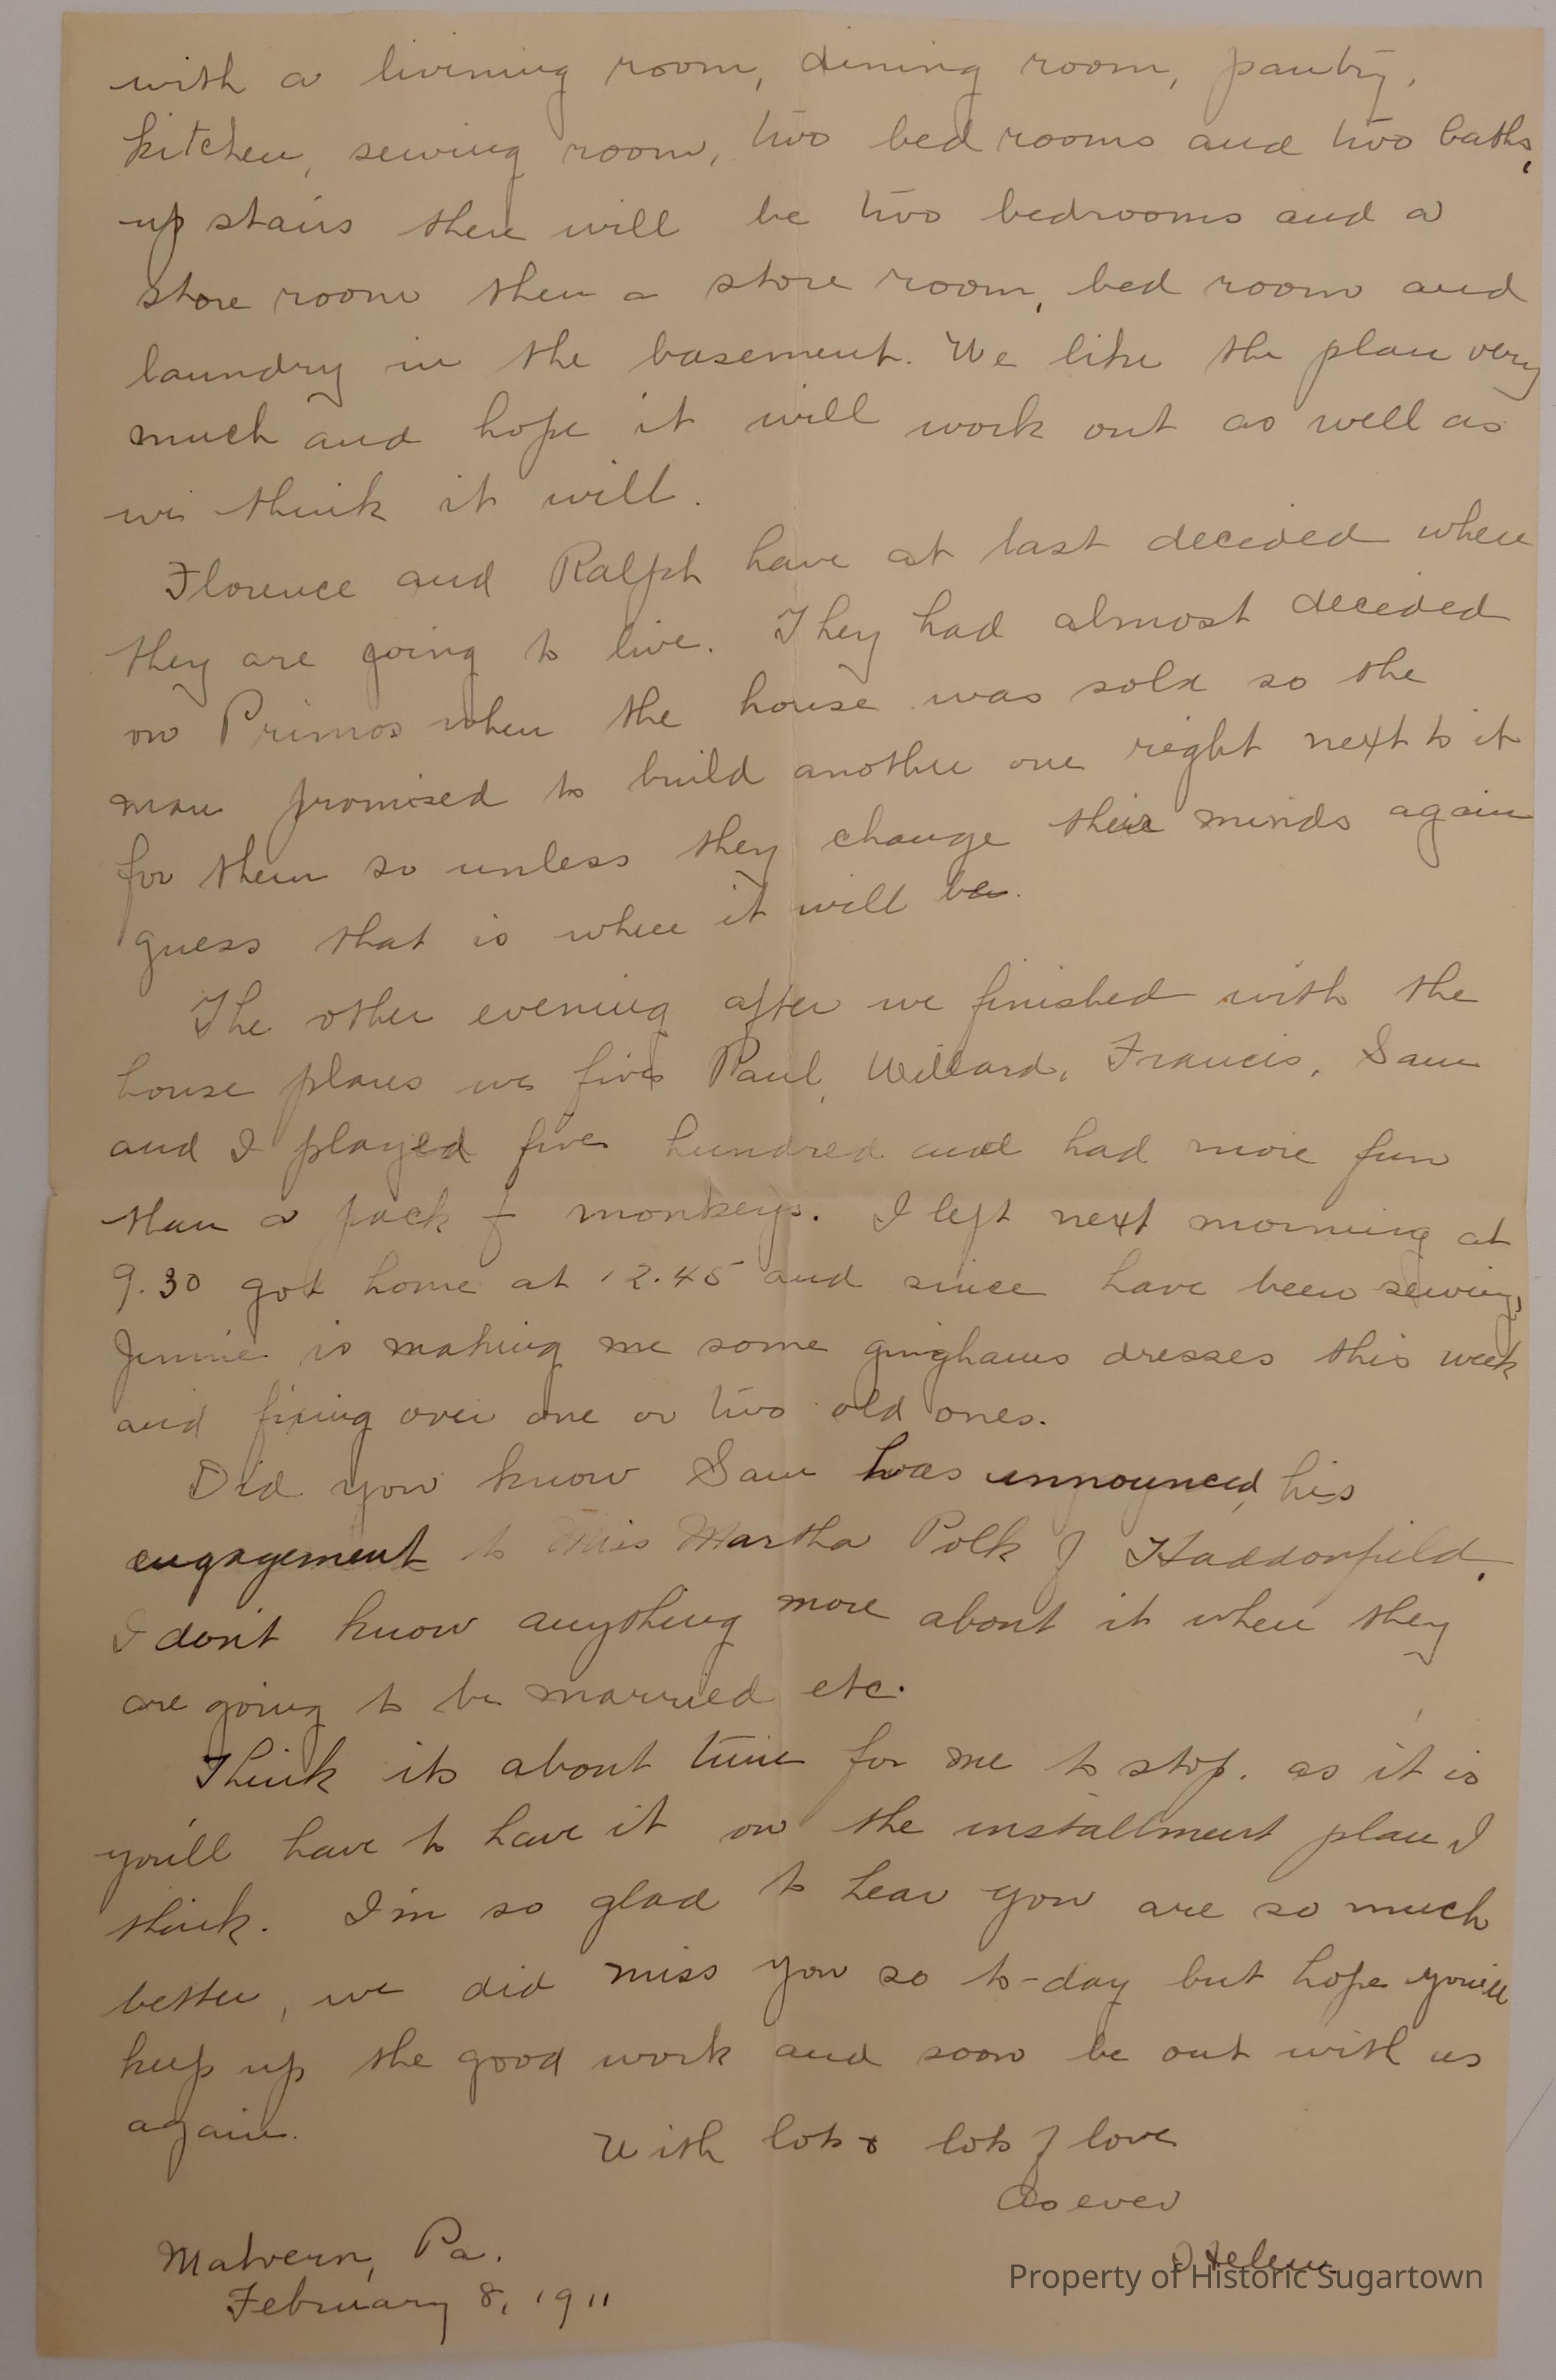 with a livining room, dining room, pantry,
kitchen, sewing room, two bed rooms and two baths,
up stairs there will be two bedrooms and a
store room then a store room, bed room and
laundry in the basement. We like the plan very
much and hope it will work out as well as
we think it will.
Florence and Ralph have at last decided where
they are going to live. They had almost decided
on Primos when the house was sold so the
man promised to build another one right next to it
for them so unless they change their minds again
guess that is where it will be.
The other evening after we finished with the
house plans we five Paul, Willard, Francis, Sam
and I played five hundred and had more fun
than a pack of monkeys. I left next morning at
9.30 got home at 12.45 and since have been sewing,
Jennie is making me some ginghams dresses this week
and fixing over one or two old ones.
Did you know Sam has announced his
engagement to Miss Martha Polk of Haddonfield.
I don't know anything more about it when they
are going to be married etc.
Think its about time for me to stop. as it is
you'll have to have it on the installment plan I
think. I'm so glad to hear you are so much
better, we did miss you so to-day but hope you'll
keep up the good work and soon be out with us
again.
With lots & lots of love
As ever
Helen
Malvern, Pa.
February 8, 1911
Property of Historic Sugartown